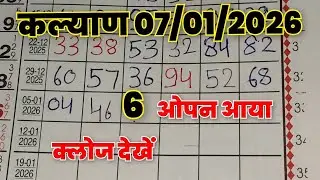 कल्याण 07/01/2026
22-12 2025 33 38 53 32 84 82
29-12 2025 60 57 36 94 52 68
05-01 2026 04 46 6 ओपन आया
12-01 2026
क्लोज देखें
19-01 2026